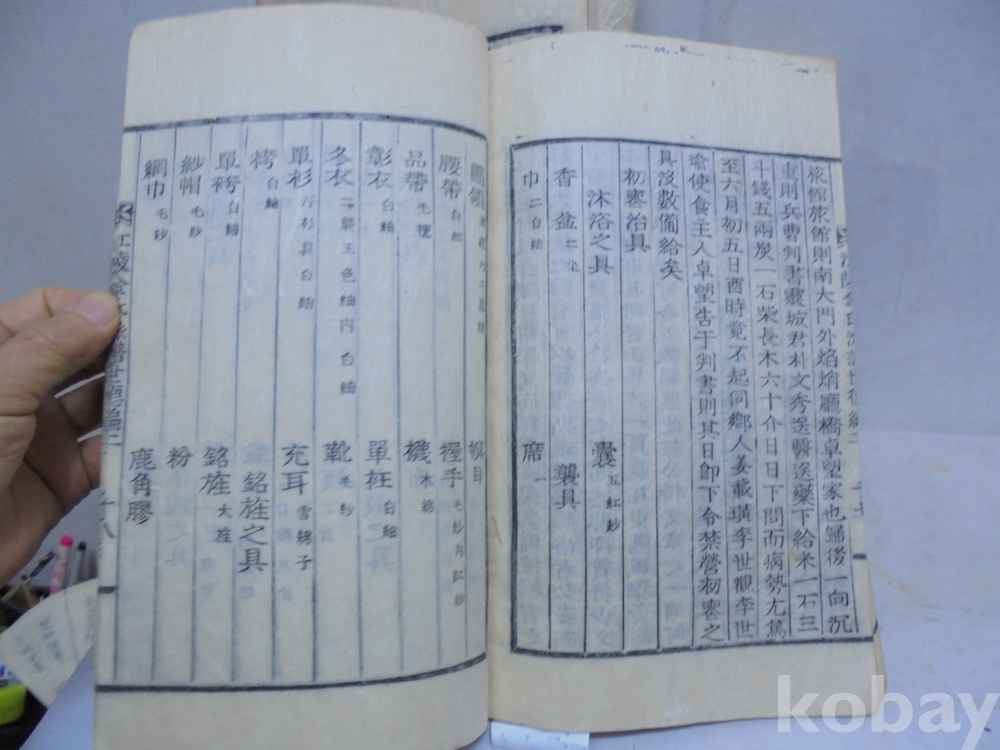 旅館旅館則南大門外焰焇廳橋卓望家也歸後一向沉
重則兵曹判書靈城君朴文秀送醫送藥下給米一石三
斗錢五兩炭一石柴長木六十介日日下問而病勢尤篤
至六月初五日酉時竟不起同鄉人姜載璜李世觀李世
瑜使食主人卓望告于判書則其日卽下令禁營初窆之
具沒數備給矣
初窆治具
沐浴之具 囊 五紅紗
香盆 二坐 襲具
巾 二白紬 席 一
幎目
腰帶 白紬 握手 毛紗內紅紗
品帶 毛 襪 木綿
彰衣 白紬 單 白紬
冬衣 二襲玉色紬內白紬 靴 毛紗
單衫 汗衫具白紬 充耳 雪綿子
袴 白紬 銘旌之具
單袴 白紬 銘旌 大旌
紗帽 毛紗 粉
網巾 毛紗 鹿角膠
kobay